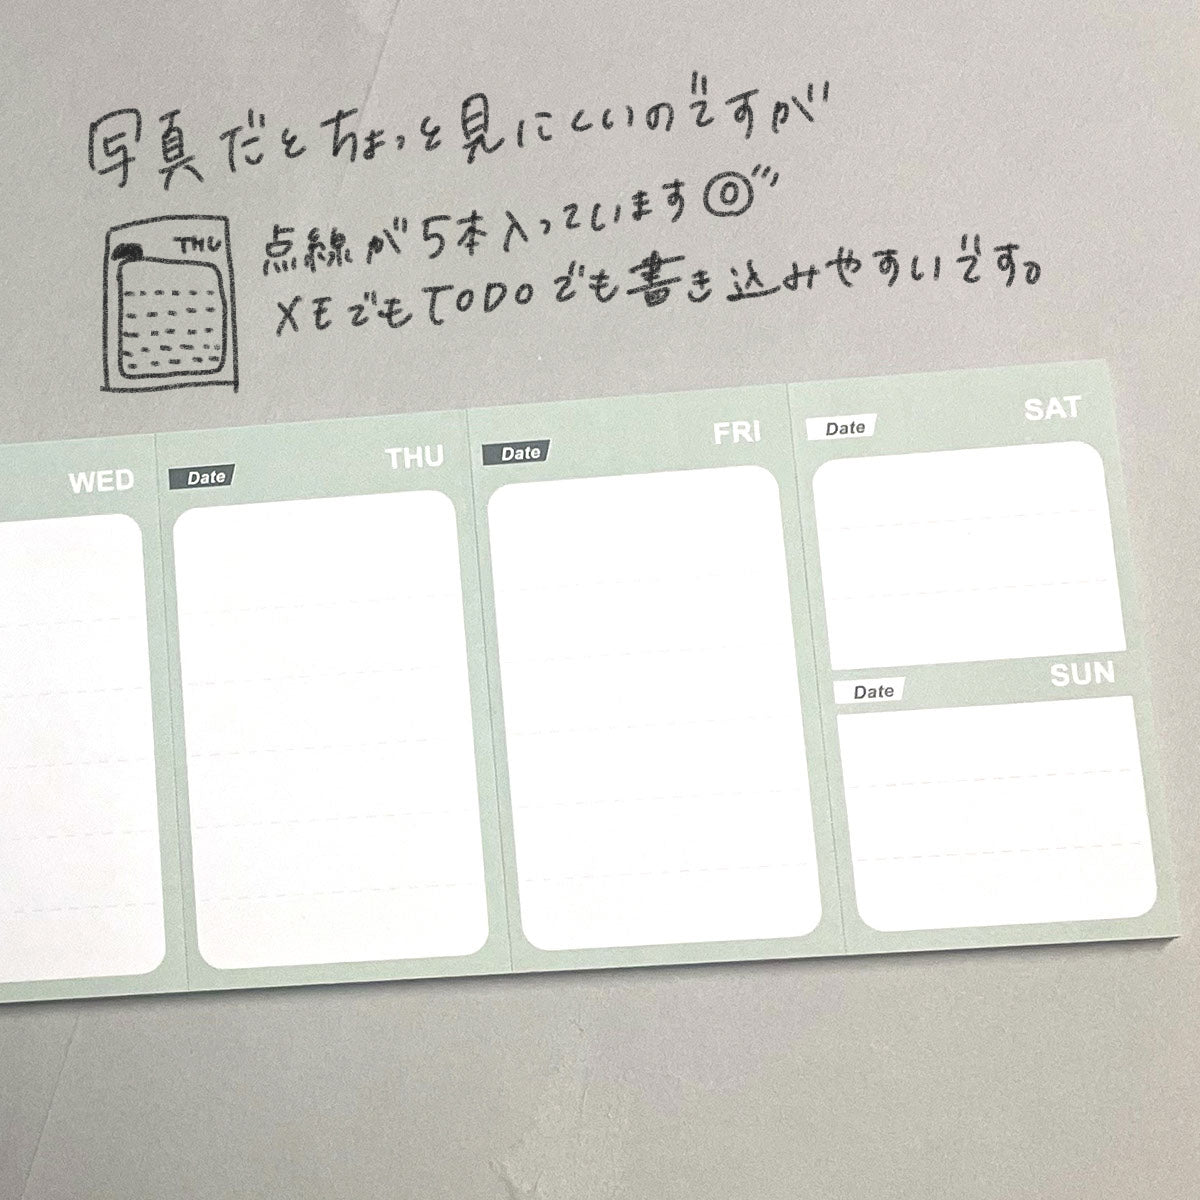 写真だとちょっと見にくいのですが
THU
点線が5本入っています
メモでもTODOでも書き込みやすいです。
WED
Date THU
Date FRI
Date SAT
Date SUN